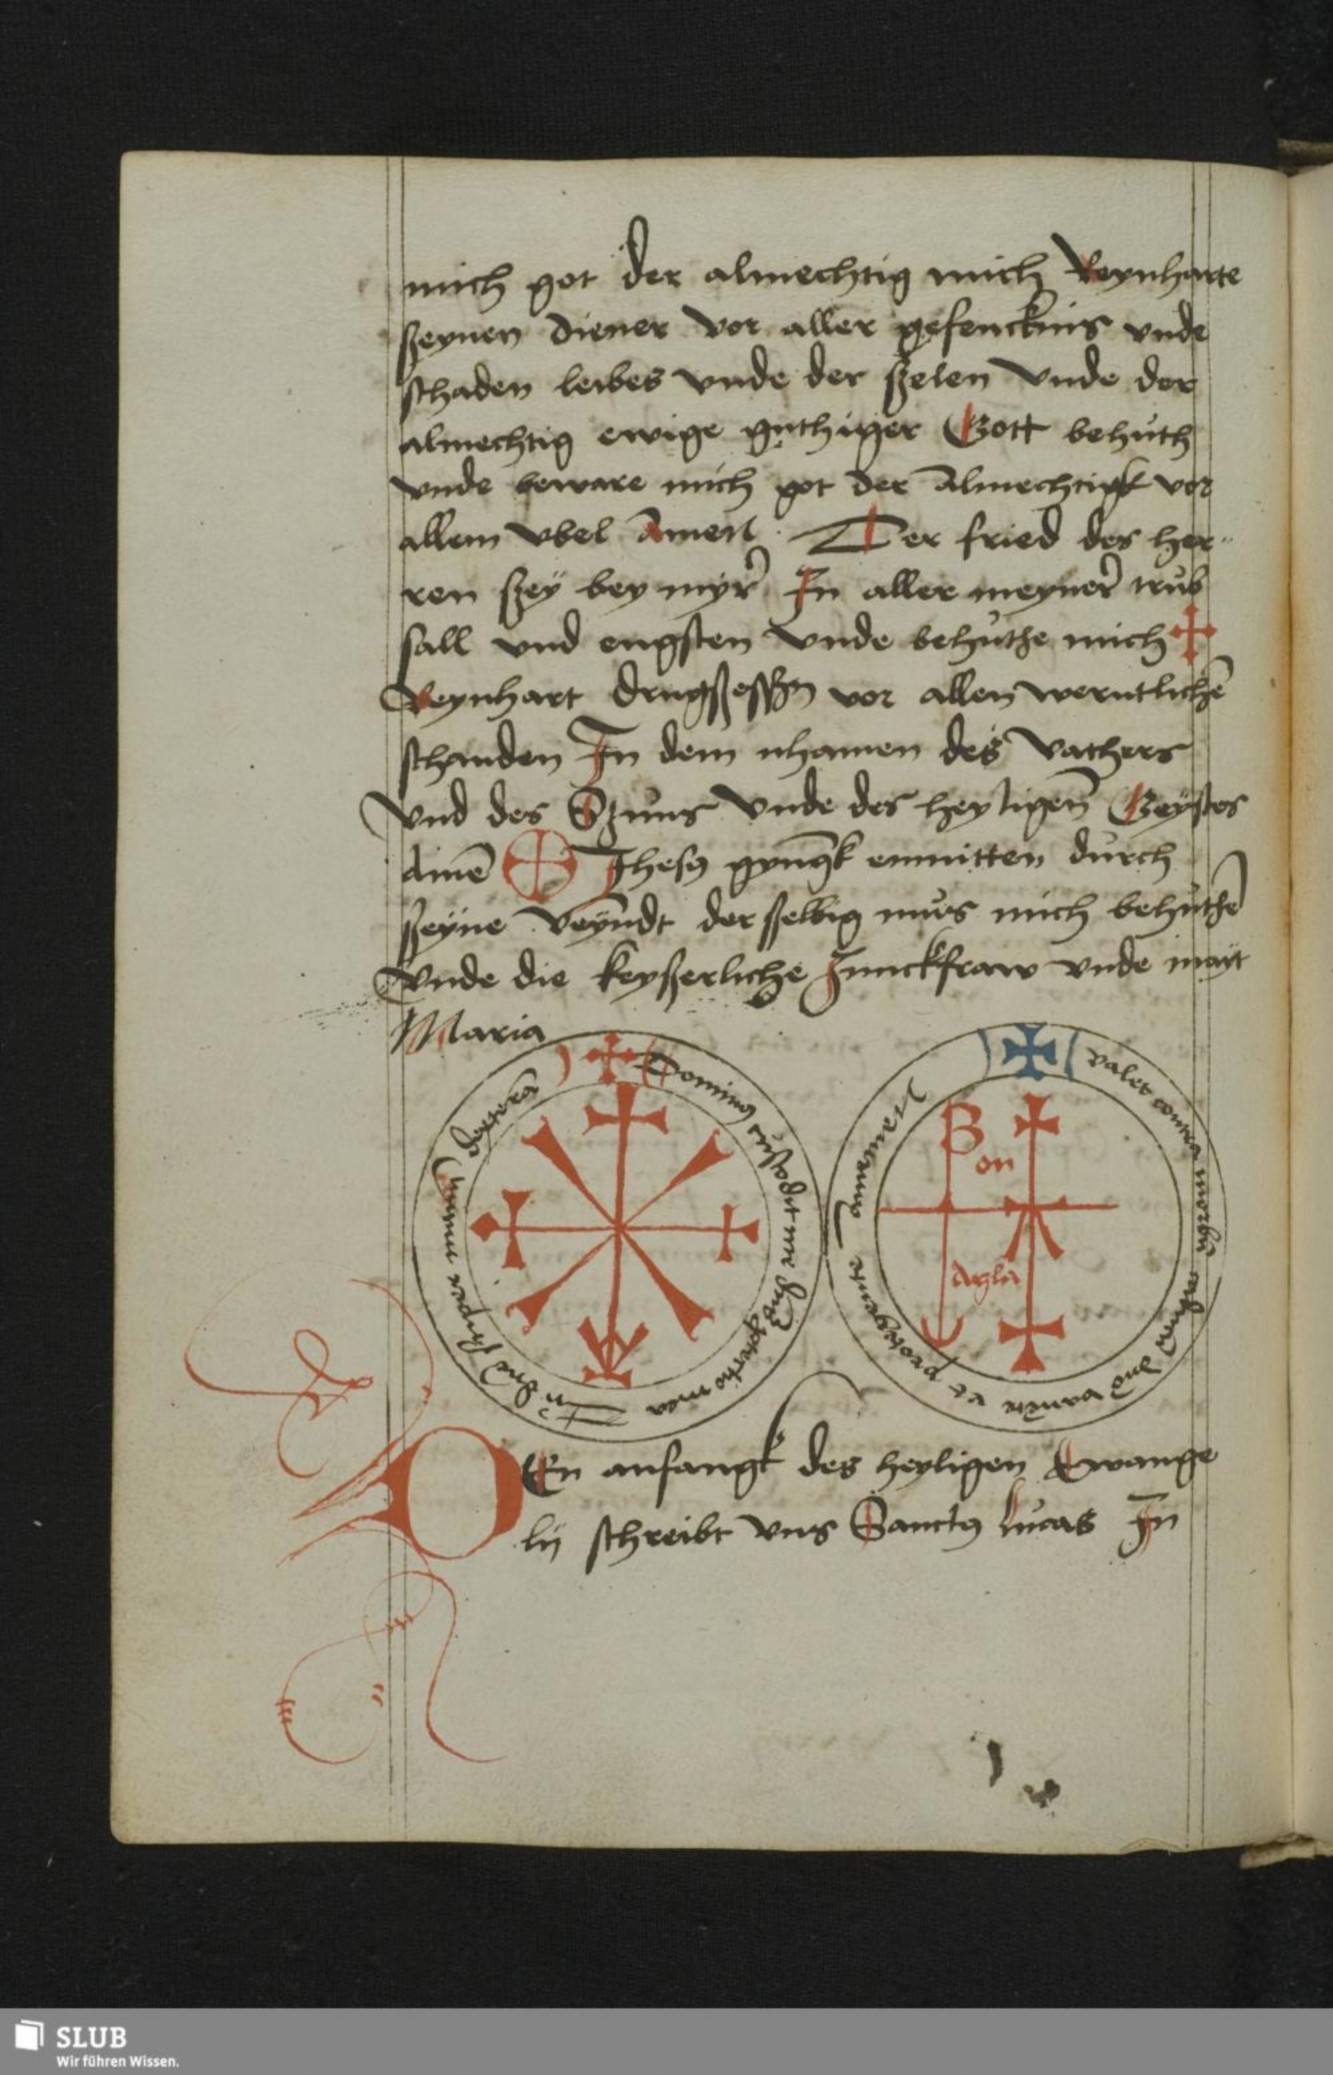 mich got der almechtig mich Reynharte
szeynen diener vor aller gefencknis vnde
schaden leibes vnde der szelen Vnde der
almechtig ewige guthiger Gott behuth
vnde beware mich got der Almechtigk vor
allem vbel Amen Der fried des her-
ren szey bey myr In aller meyner trub
sall vnd engsten Vnde behuthe mich ✠
Reynhart vor allen werntlichē
schanden In dem nhamen des Vathers
Vnd des Szuns Vnde des heyligen Geystes
Amē Ihesꝯ gynck enmitten durch
szeyne veyndt der selbig mus mich behuthē
Vnde die keyszerliche Junckfraw vnde mayt
Maria
✠ Dominꝯ me In dextera
✠ Valet contra ut protegente
Bon
on
Agla
DEn anfangk des heyligen Ewange
lij schreibt vns Sanctꝯ Lucas In
SLUB
Wir führen Wissen.